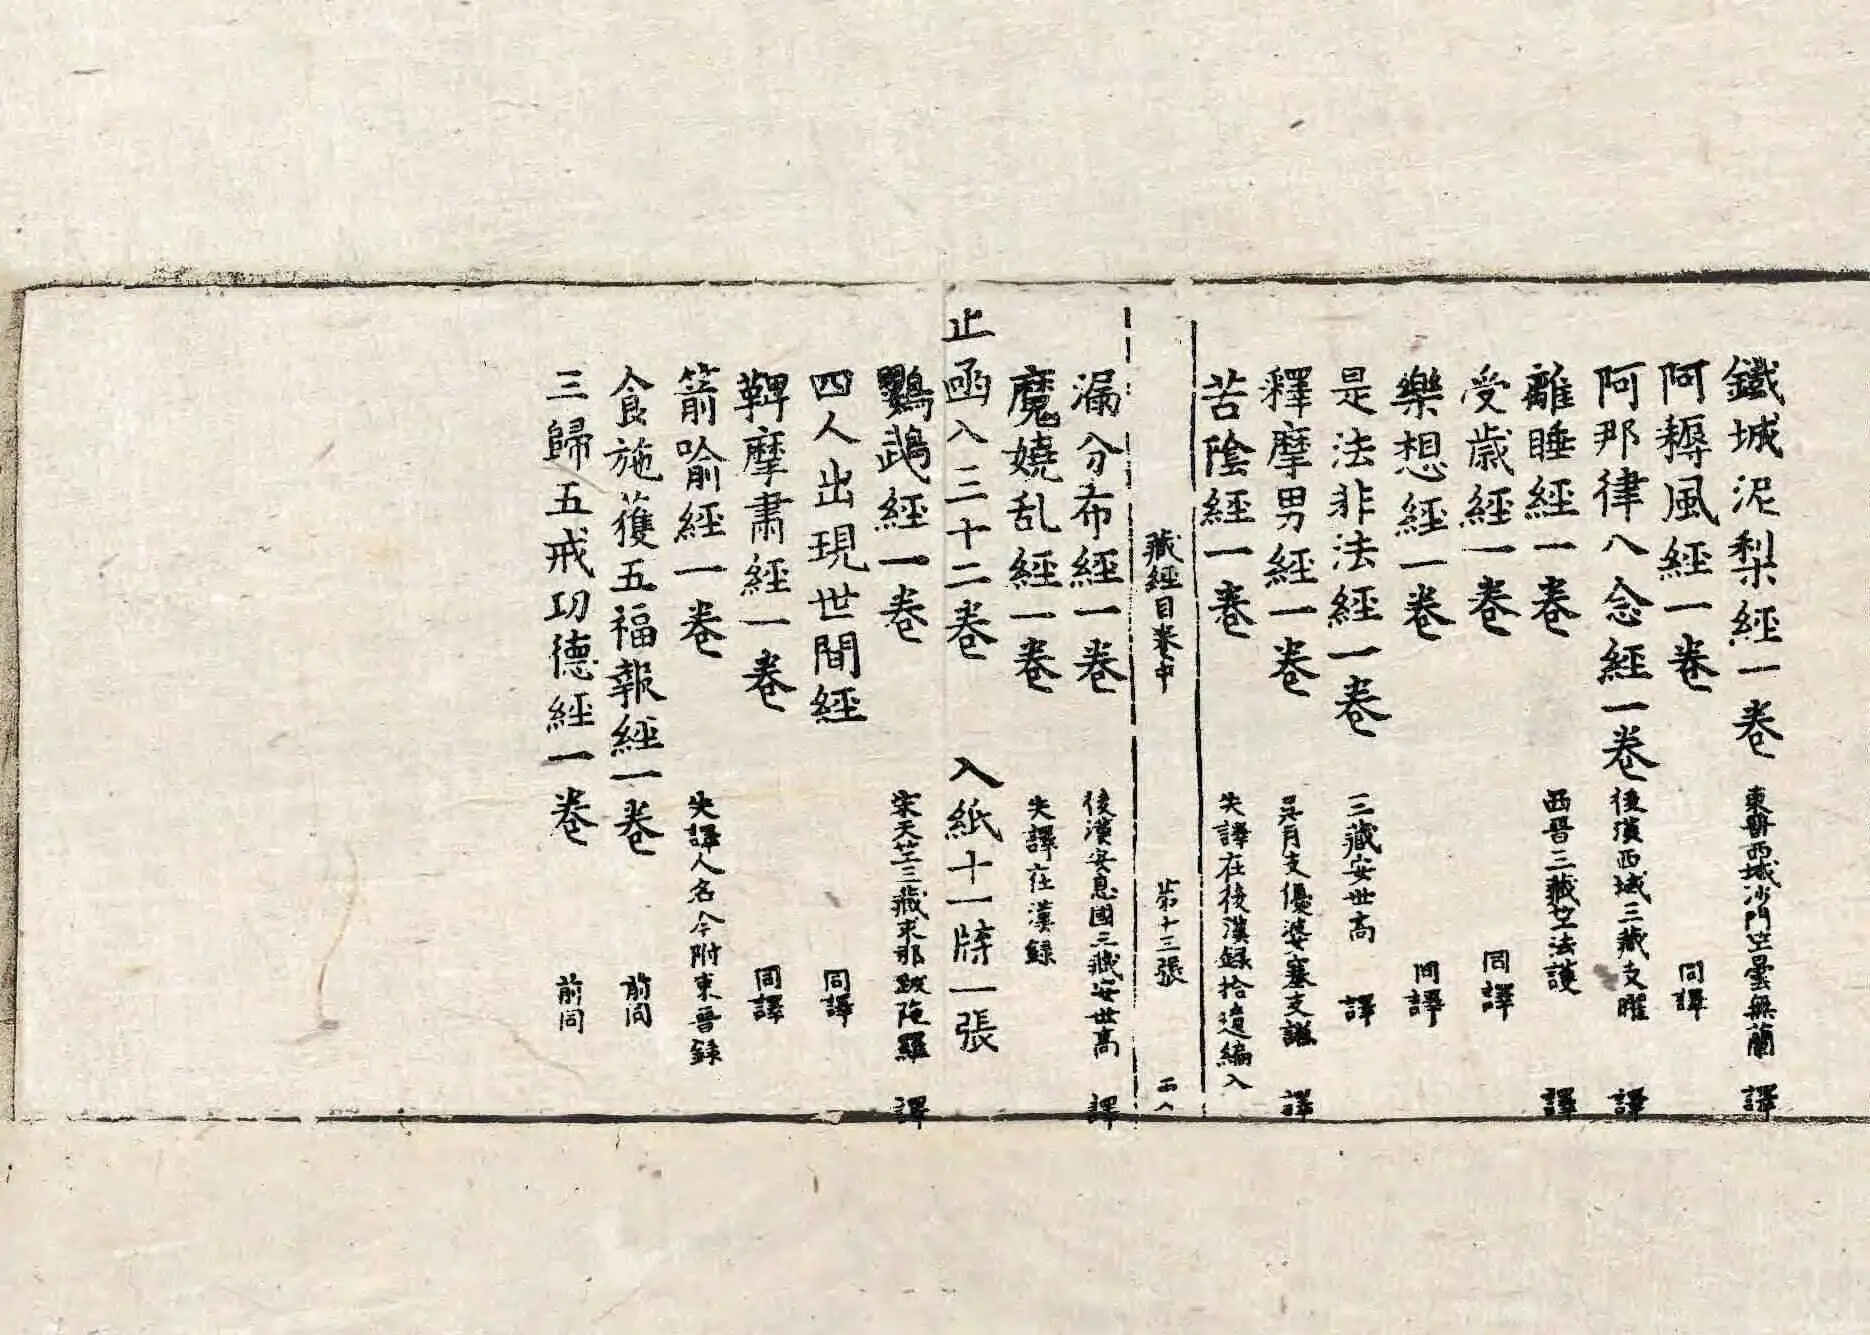 鐵城泥梨經一卷 東晉西域沙門竺曇無蘭 譯
阿耨風經一卷 同譯
阿那律八念經一卷 後漢西域三藏支曜 譯
離睡經一卷 西晉三藏竺法護 譯
受歲經一卷 同譯
樂想經一卷 同譯
是法非法經一卷 三藏安世高 譯
釋摩男經一卷 吳月支優婆塞支謙 譯
苦陰經一卷 失譯在後漢録拾遺編入
藏經目卷中 第十三張
漏分布經一卷 後漢安息國三藏安世高 譯
魔嬈乱經一卷 失譯在漢録
止函八三十二卷 入紙十一牒一張
鸚鵡經一卷 宋天竺三藏求那跋陁羅 譯
四人出現世間經 同譯
鞞摩肅經一卷 同譯
箭喻經一卷 失譯人名今附東晉録
食施獲五福報經一卷 前同
三歸五戒功德經一卷 前同